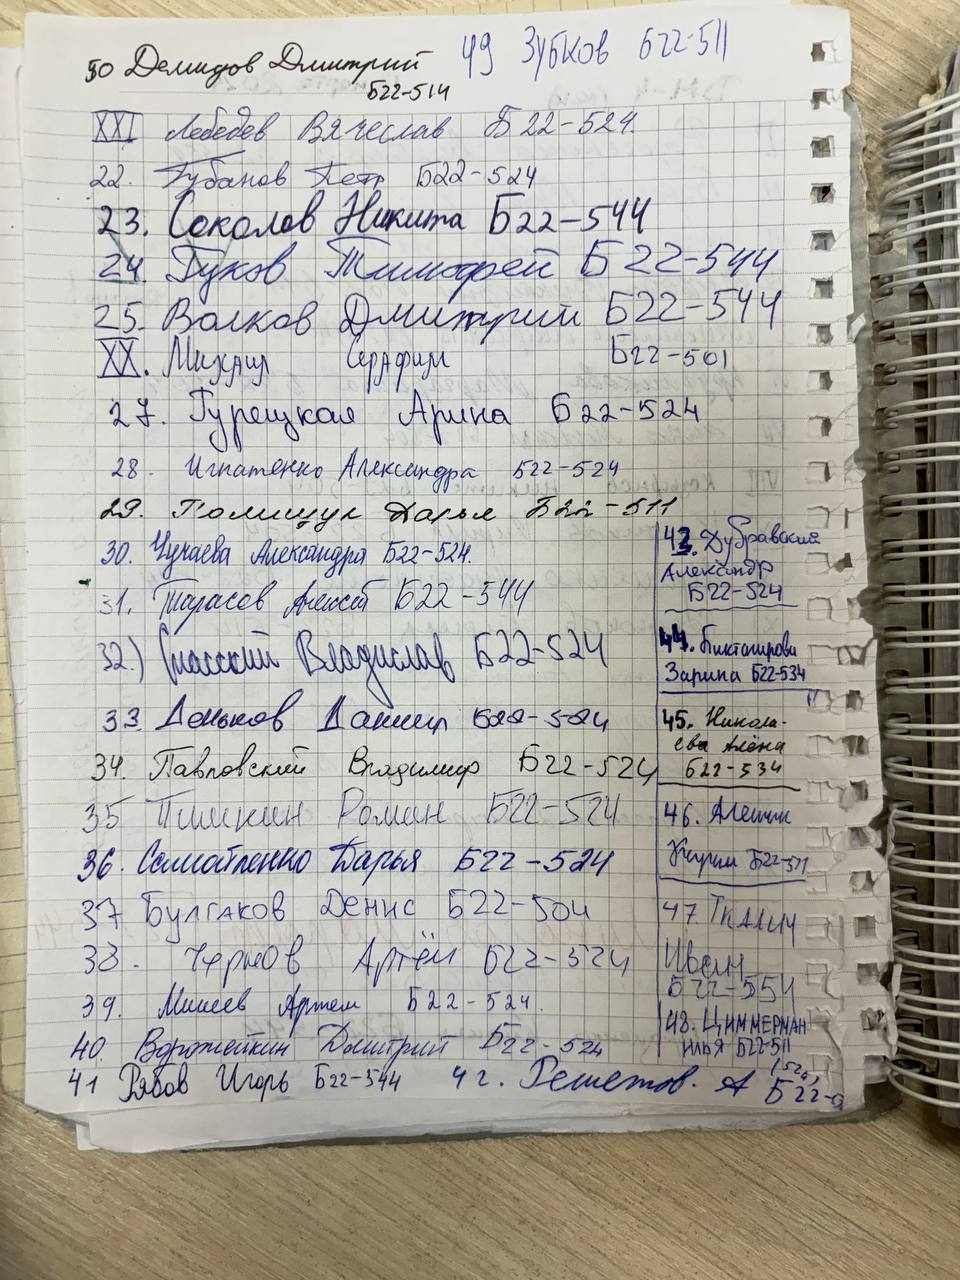 50 Демидов Дмитрий
Б22-514
49 Зубков Б22-511
XXI Лебедев Вячеслав Б22-524
22. Губанов Петр Б22-524
23. Соколов Никита Б22-544
24. Гуков Тимофей Б22-544
25. Волков Дмитрий Б22-544
XX. Михаил Серафим Б22-501
27. Гурецкая Арина Б22-524
28. Игнатенко Александра Б22-524
29. Полищук Дарья Б22-511
30. Чучаева Александра Б22-524.
31. Тарасов Б22-544
32.) Спасский Владислав Б22-524
33. Деньков Даниил Б22-524
34. Павловский Владимир Б22-524
35 Пишкин Роман Б22-524
36. Самойленко Дарья Б22-524
37 Булгаков Денис Б22-504
38. Чернов Артём Б22-524
39. Минеев Артем Б22-524.
40. Ворожейкин Дмитрий Б22-524
41 Рябов Игорь Б22-544
42. Решетов. А Б22-
43. Дубравский
Александр
Б22-524
44. Биктагирова
Зарина Б22-534
45. Никола-
ева Алёна
Б22-534
46. Алешин
Б22-511
47 Ткалич
Иван
Б22-554
48. Циммерман
Илья Б22-511